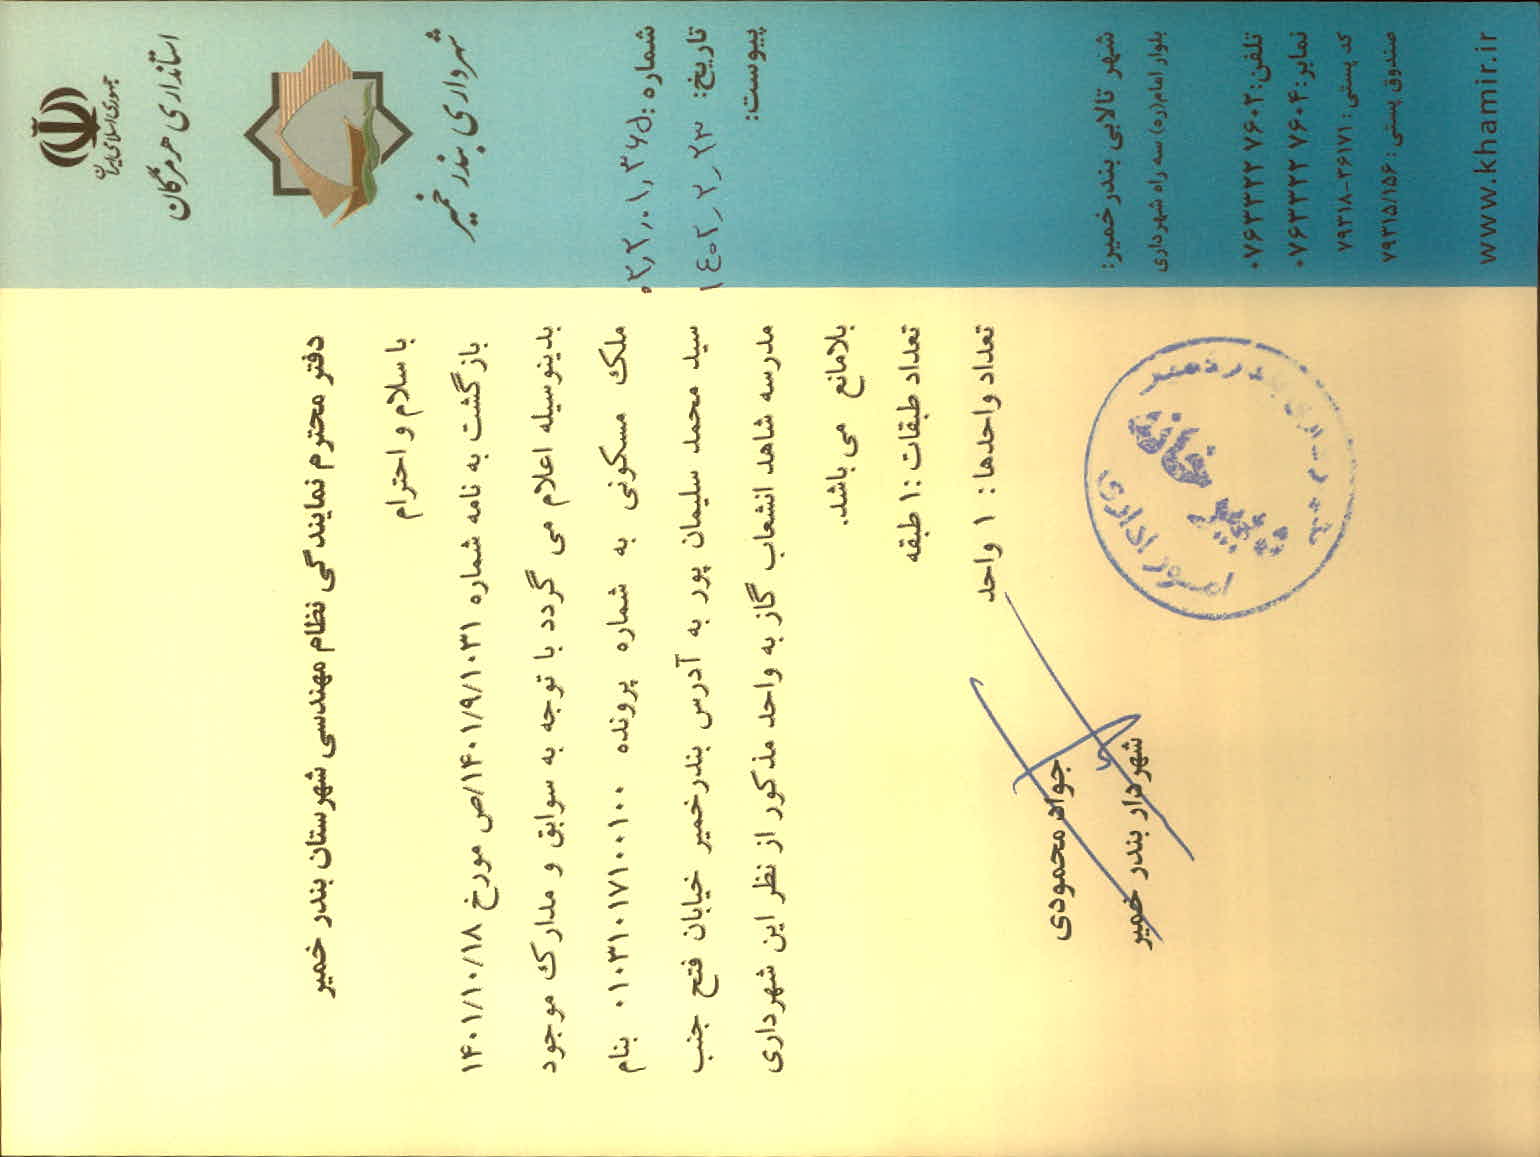 جمهوری اسلامی ایران
استانداری هرمزگان
شهرداری بندر خمیر
شماره:
تاریخ: ۱۴۰۲٫۲٫۲۳
پیوست:
شهر تالابی بندر خمیر:
بلوار امام(ره) سه راه شهرداری
تلفن: ۰۷۶۳۳۲۲ ۷۶۰۲
نمابر: ۰۷۶۳۳۲۲ ۷۶۰۴
کد پستی: ۷۹۳۱۸-۳۶۱۷۱
صندوق پستی: ۷۹۳۱۵/۱۵۶
www.khamir.ir
دفتر محترم نمایندگی نظام مهندسی شهرستان بندر خمیر
با سلام و احترام
بازگشت به نامه شماره ۱۴۰۱/۹/۱۰۳۱/ص مورخ ۱۴۰۱/۱۰/۱۸
بدینوسیله اعلام می گردد با توجه به سوابق و مدارک موجود
ملک مسکونی به شماره پرونده ۰۱۰۳۱۰۱۷۱۰۰۱۰۰ بنام
سید محمد سلیمان پور به آدرس بندرخمیر خیابان فتح جنب
مدرسه شاهد انشعاب گاز به واحد مذکور از نظر این شهرداری
بلامانع می باشد.
تعداد طبقات :۱ طبقه
تعداد واحدها : ۱ واحد
جواد محمودی
شهردار بندر خمیر
شهرداری بندر خمیر
دبیرخانه
امور اداری